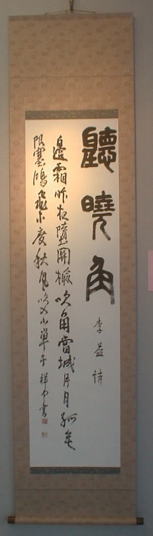 聽曉角
李益詩
邊霜昨夜墮關榆吹角當城片月孤無
限塞鴻飛不度秋風吹入小單于 書